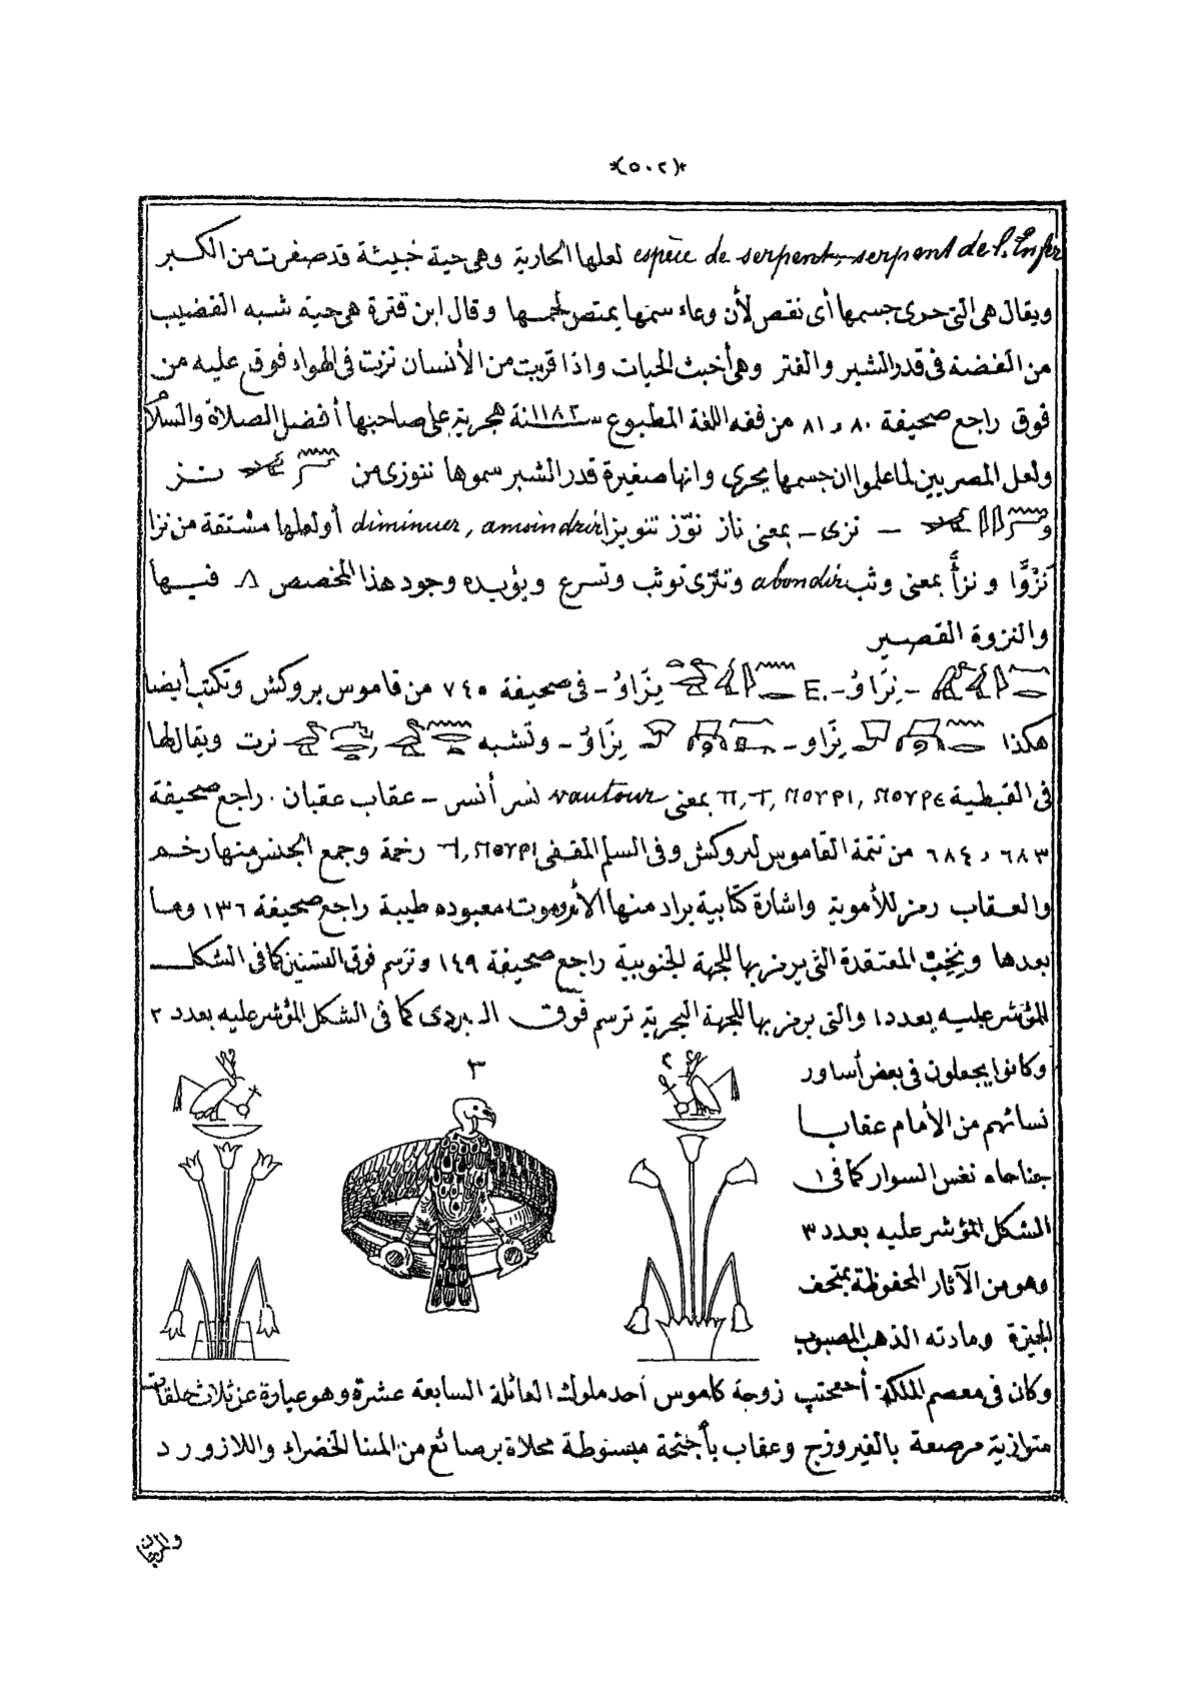 *(٥٠٢)*
espèce de serpent, serpent de l'Enfer لعلها الحارية وهى حية خبيثة قد صغرت من الكبر
ويقال هى التى حرى جسمها أى نقص لأن وعاء سمها يمتص لحمها وقال ابن قترة هى حية شبه القضيب
من الفضة فى قدر الشبر والفتر وهى أخبث الحيات واذا قربت من الأنسان نزت فى الهواء فوقع عليه من
فوق راجع صحيفة ٨٠ و ٨١ من فقه اللغة المطبوع سنة ١١٨٣ هجرية على صاحبها أفضل الصلاة والسلام
ولعل المصريين لما علموا ان جسمها يحرى وانها صغيرة قدر الشبر سموها نزوزى من نز
و – نزى – بمعنى ناز نوّز تنويزا diminuer, amoindrir أو لعلها مشتقة من نزا
نَزْوًا و نزأً بمعنى وثب abondir وتنزّى توثب وتسرع ويؤيده وجود هذا المخصص فيها
والنزوة القصير
– نِرَاوُ – .E نِرَاوُ – فى صحيفة ٧٤٥ من قاموس بروكش وتكتب أيضا
هكذا نِرَاو – نِرَاوُ – وتشبه نرت ويقال لها
فى القبطية ⲡ, ϯ, ⲛⲟⲩⲣⲓ, ⲛⲟⲩⲣⲉ بمعنى vautour نسر أنسر – عقاب عقبان . راجع صحيفة
٦٨٣ و ٦٨٤ من تتمة القاموس لبروكش وفى السلم المقفى ϯ, ⲛⲟⲩⲣⲓ رخمة وجمع الجنس منها رخم
والعقاب رمز للأموية واشارة كتابية يراد منها الأم وموت معبوده طيبة راجع صحيفة ١٣٦ وما
بعدها ونخب المعتقدة التى يرمز بها للجهة الجنوبية راجع صحيفة ١٤٩ وترسم فوق البشنين كما فى الشكل
المؤشر عليه بعدد ١ والتى يرمز بها للجهة البحرية ترسم فوق البردى كما فى الشكل المؤشر عليه بعدد ٢
وكانوا يجعلون فى بعض أساور
نسائهم من الأمام عقابا
جناحاه نفس السوار كما فى
الشكل المؤشر عليه بعدد ٣
وهو من الآثار المحفوظة بمتحف
الجيزة ومادته الذهب المصبوب
١
٣
٢
وكان فى معصم الملكة أححتب زوجة كاموس أحد ملوك العائلة السابعة عشرة وهو عبارة عن ثلاث حلقات
متوازية مرصعة بالفيروزج وعقاب بأجنحة مبسوطة محلاة برصائع من المينا الخضراء واللازورد
والمرجان